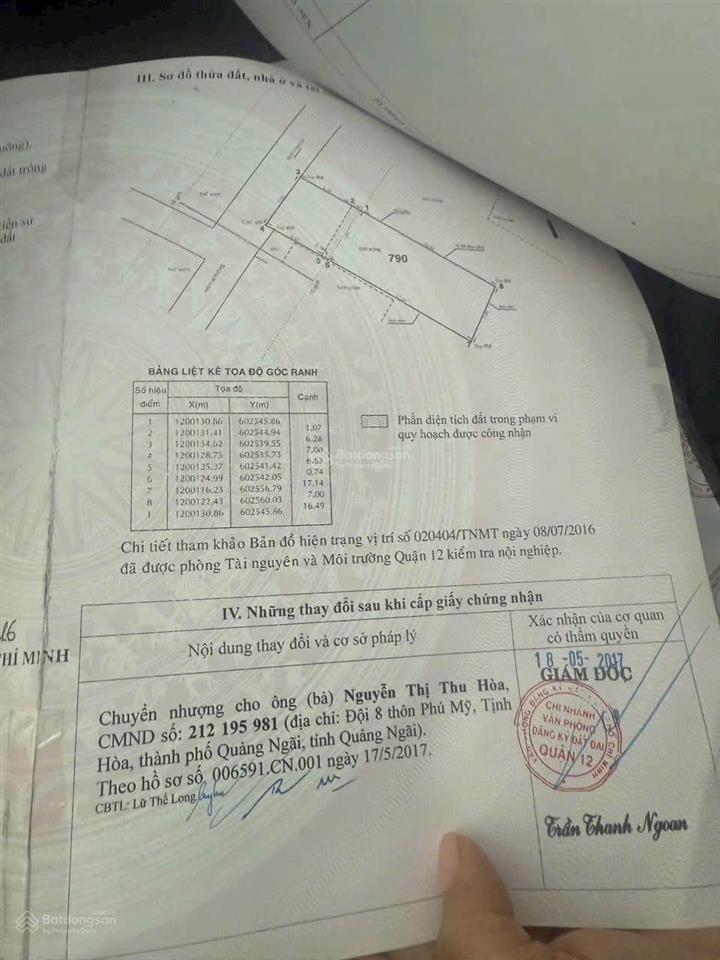 III. Sơ đồ thửa đất, nhà ở và tài
đất trồng
đất
3
2
1
4
5
6
790
8
BẢNG LIỆT KÊ TỌA ĐỘ GÓC RANH
Số hiệu điểm Tọa độ Cạnh
X(m) Y(m)
1 1200130.86 602545.86
1.07
2 1200131.41 602544.94
6.28
3 1200134.62 602539.55
7.00
4 1200128.75 602535.73
6.62
5 1200125.37 602541.42
0.74
6 1200124.99 602542.05
17.14
7 1200116.23 602556.79
7.00
8 1200122.43 602560.03
16.49
1 1200130.86 602545.86
Phần diện tích đất trong phạm vi
quy hoạch được công nhận
Batdongsan
by PropertyGuru
Chi tiết tham khảo Bản đồ hiện trạng vị trí số 020404/TNMT ngày 08/07/2016
đã được phòng Tài nguyên và Môi trường Quận 12 kiểm tra nội nghiệp.
IV. Những thay đổi sau khi cấp giấy chứng nhận
Nội dung thay đổi và cơ sở pháp lý
Xác nhận của cơ quan
có thẩm quyền
HÍ MINH
Chuyển nhượng cho ông (bà) Nguyễn Thị Thu Hòa,
CMND số: 212 195 981 (địa chỉ: Đội 8 thôn Phú Mỹ, Tịnh
Hòa, thành phố Quảng Ngãi, tỉnh Quảng Ngãi).
Theo hồ sơ số, 006591.CN.001 ngày 17/5/2017.
CBTL: Lữ Thế Long
18-05-2017
GIÁM ĐỐC
CHI NHÁNH
VĂN PHÒNG
ĐĂNG KÝ ĐẤT ĐAI
QUẬN 12
Trần Thanh Ngoan
Batdongsan
by PropertyGuru